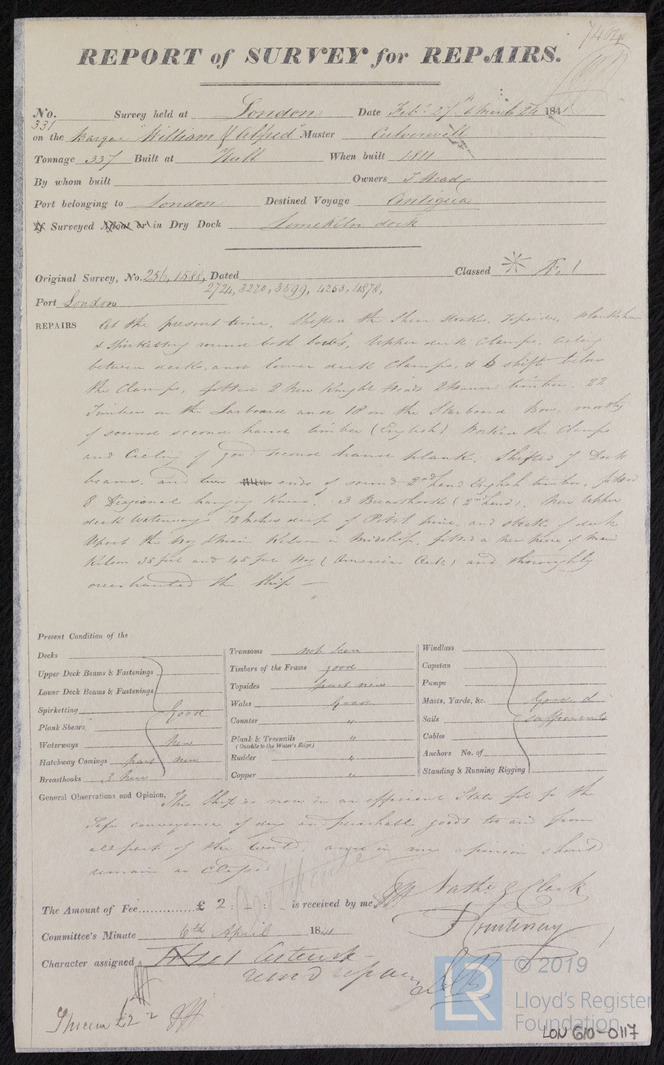 REPORT of SURVEY for REPAIRS.
No. 331 Survey held at London Date Feb. 27 & March 24 1841
on the Barque "William & Alfred" Master Culverwell
Tonnage 337 Built at Hull When built 1811
By whom built Owners T Head
Port belonging to London Destined Voyage Antigua
If Surveyed Afloat or in Dry Dock Limekiln dock
Original Survey, No. 256, 1588, Dated Classed A 1
2724, 3220, 3599, 4253, 4878,
Port London
REPAIRS At the present time, Shifted the Shear Strakes, Topsides, Plansheer
& Spirketting round both bows, Upper deck Clamps, Cieling
between decks, and lower deck Clamps, & 6 shifts below
the Clamps, fitted 2 New Knight Heads 2 Hawse timbers. 22
Timbers on the Larboard and 18 on the Starboard Bow, mostly
of sound second hand timber (English) Worked the Clamps
and Cieling of good second hand plank. Shifted 7 Deck
beams, and two ends of sound 2nd hand English timber, fitted
8 Diagonal hanging Knees. 3 Breasthooks (2nd hand). New Upper
deck Waterways 12 inches deep of Pitch Pine, and of deck
Kelson in Midships, fitted a New piece of Main
Kelson 35 feet and 45 feet long (American Oak) and thoroughly
overhauled the Ship —
Present Condition of the
Decks
Upper Deck Beams & Fastenings
Lower Deck Beams & Fastenings
Spirketting Good
Plank Shears
Waterways New
Hatchway Comings part new
Breasthooks 3 New
Transoms not seen
Timbers of the Frame good
Topsides part new
Wales Good
Counter "
Plank & Treenails "
(Outside to the Water's Edge)
Rudder "
Copper "
Windlass
Capstan
Pumps
Masts, Yards, &c. Good &
Sails sufficient
Cables
Anchors No. of
Standing & Running Rigging
General Observations and Opinion, This Ship is now in an efficient State for the
Safe conveyance of dry and perishable goods to and from
all parts of the World, and in my opinion should
remain as Classed
The Amount of Fee £ 2 : is received by me Nathl. G. Clark
P Courtenay
Committee's Minute 6th April 1841
Character assigned
© 2019
Lloyd's Register
Foundation
LON 610-0117